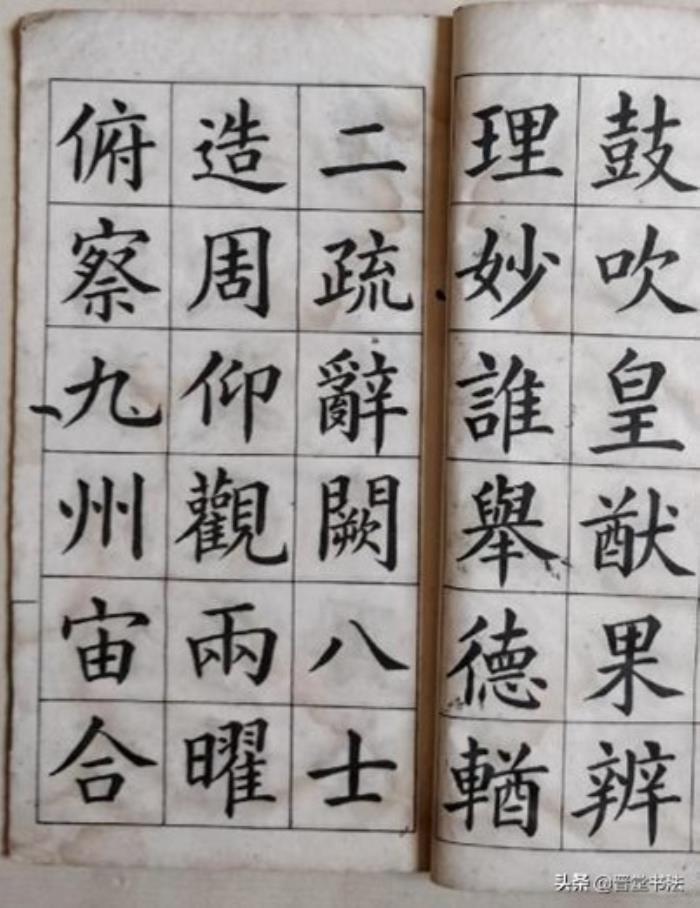 鼓吹皇猷果辨
理妙誰舉德輶
二疏辭闕八士
造周仰觀兩曜
俯察九州宙合
头条 @晋堂书法